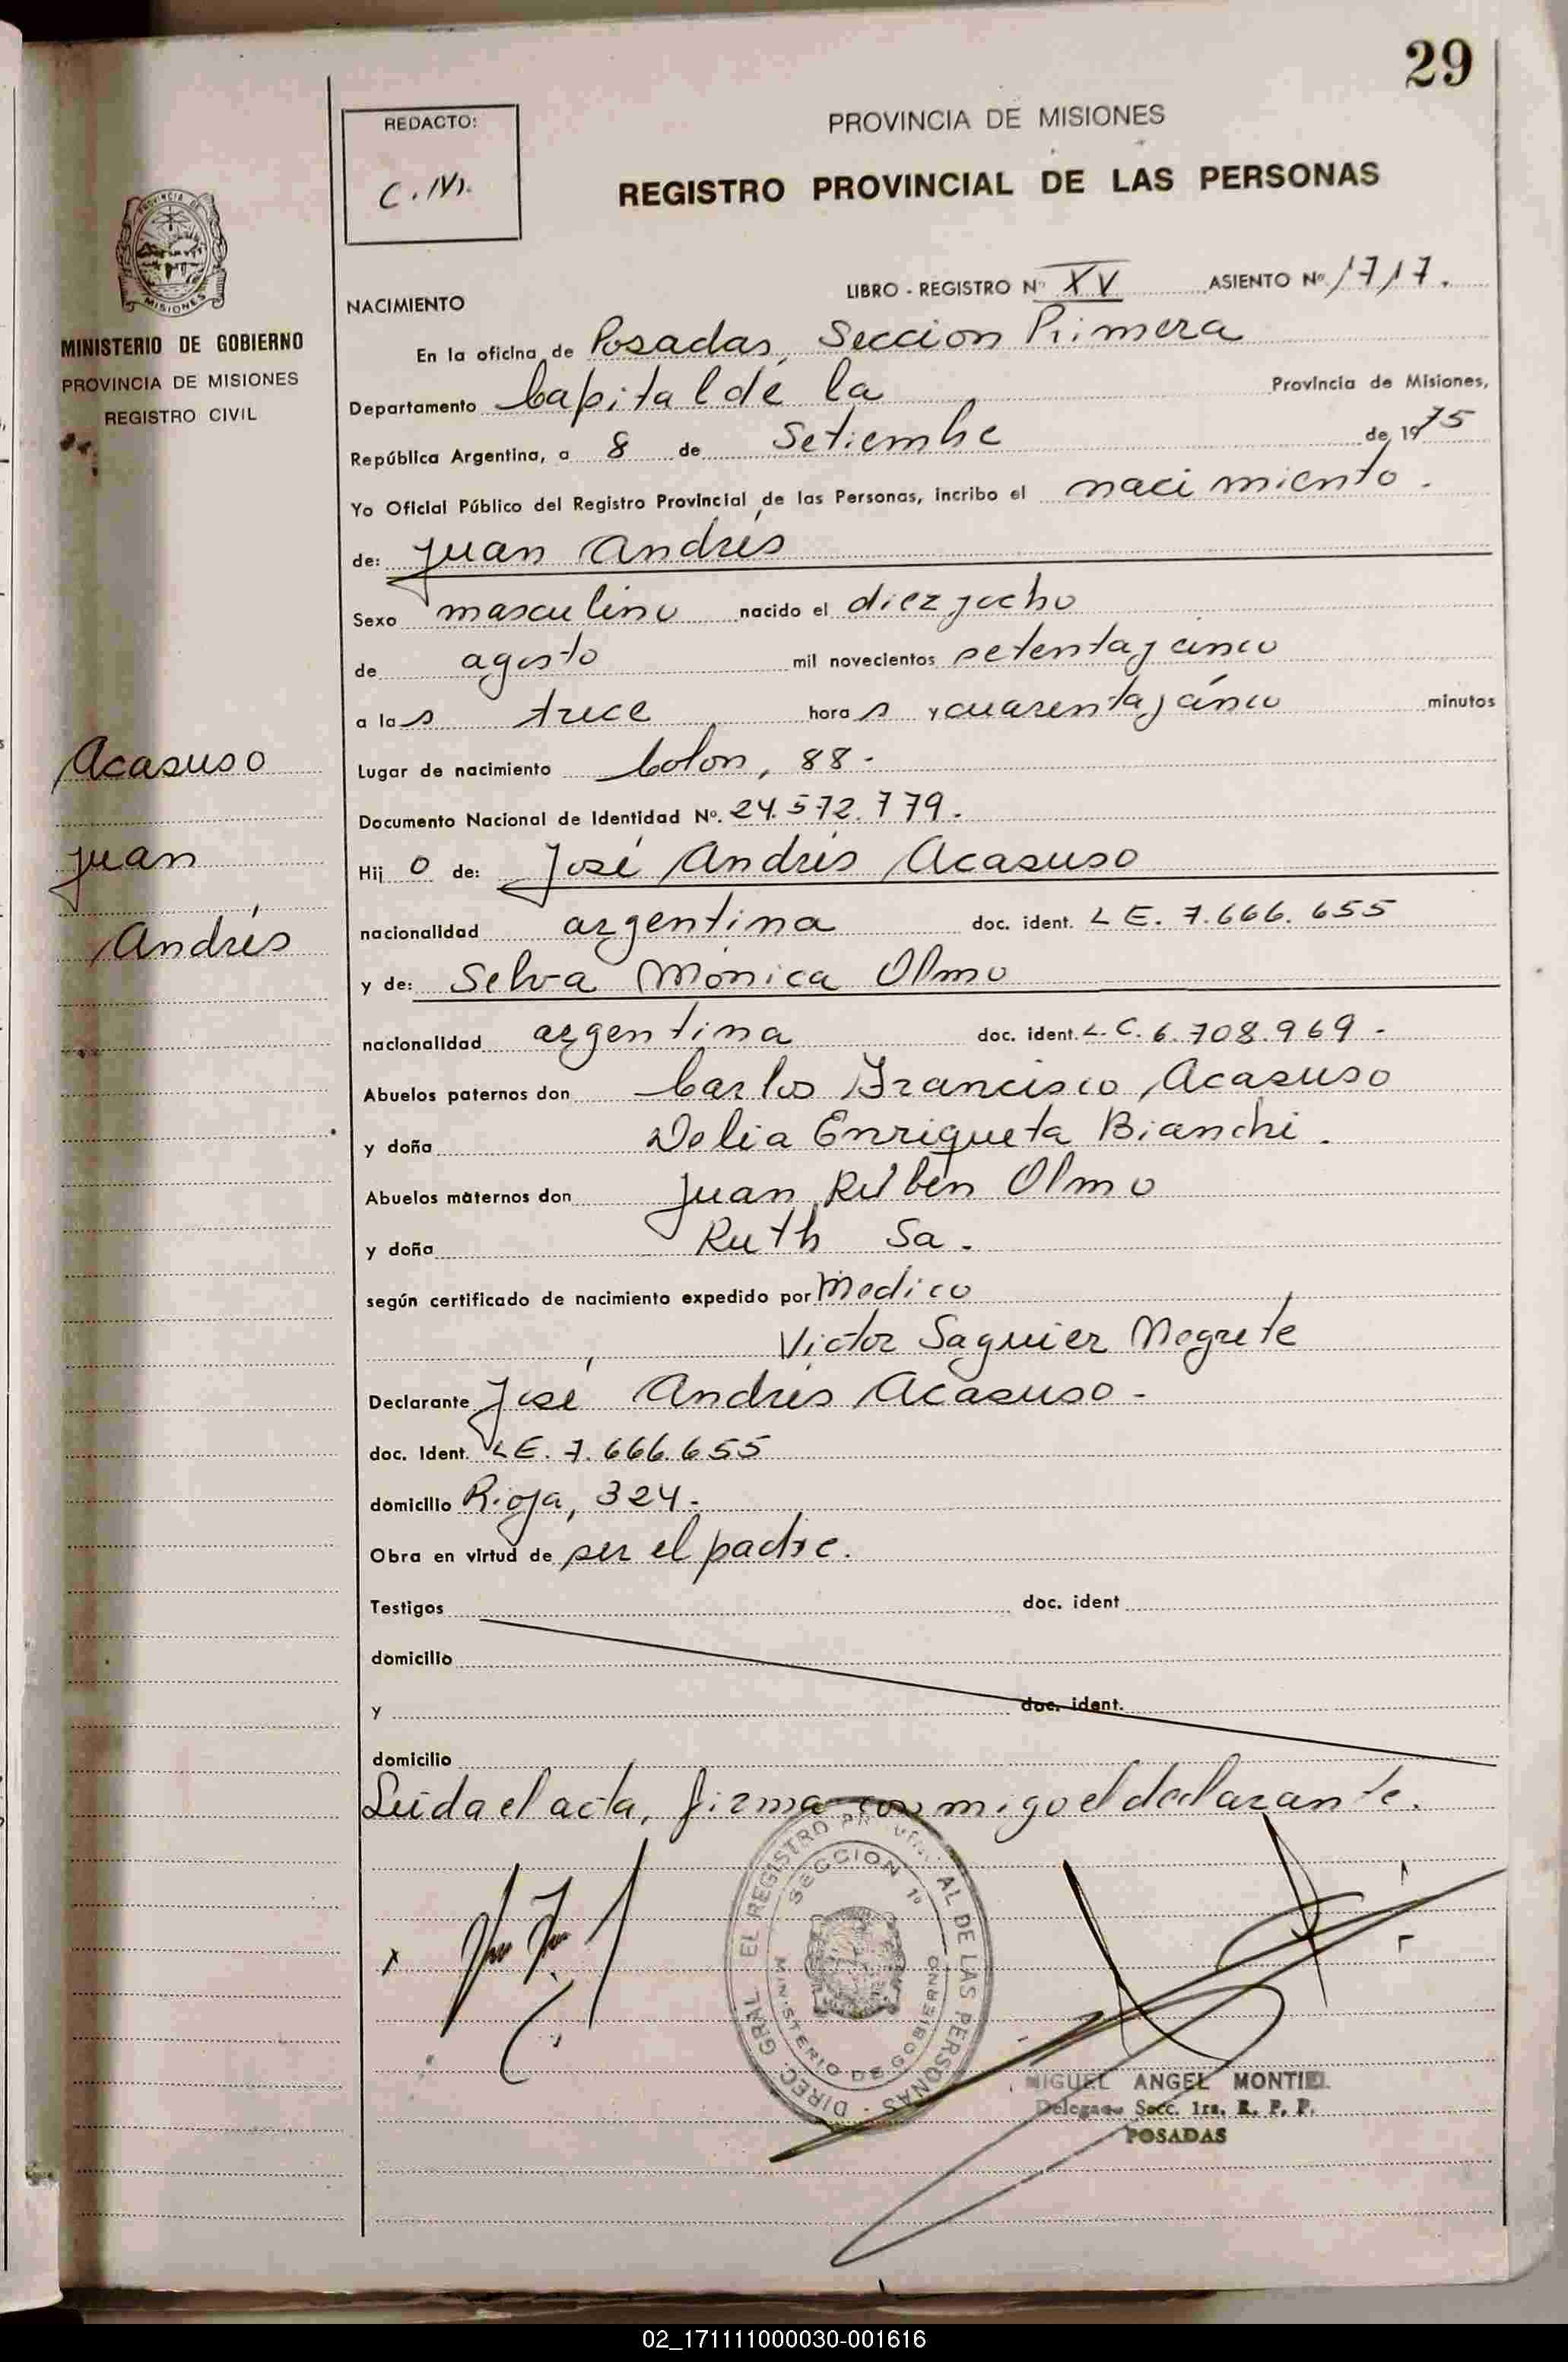 29
REDACTO:
C.M.
PROVINCIA DE MISIONES
REGISTRO PROVINCIAL DE LAS PERSONAS
PROVINCIA DE
MISIONES
MINISTERIO DE GOBIERNO
PROVINCIA DE MISIONES
REGISTRO CIVIL
LIBRO - REGISTRO Nº XV ASIENTO Nº 1717.
NACIMIENTO
En la oficina de Posadas, Seccion Primera
Departamento Capital de la Provincia de Misiones,
República Argentina, a 8 de Setiembre de 1975
Yo Oficial Público del Registro Provincial de las Personas, incribo el nacimiento.
de: Juan Andrés
Sexo masculino nacido el diez y ocho
de agosto mil novecientos setenta y cinco
a las trece horas y cuarenta y cinco minutos
Lugar de nacimiento Colon, 88.-
Documento Nacional de Identidad Nº. 24.572.779.
Hijo de: José Andrés Acasuso
nacionalidad argentina doc. ident. L E. 7.666.655
y de: Selva Mónica Olmo
nacionalidad argentina doc. ident. L.C. 6.708.969.-
Abuelos paternos don Carlos Francisco Acasuso
y doña Delia Enriqueta Bianchi.
Abuelos maternos don Juan Rubén Olmo
y doña Ruth Sa.
según certificado de nacimiento expedido por Medico
Victor Saguier Negrete
Declarante José Andrés Acasuso.-
doc. Ident. L E. 7.666.655
domicilio Rioja, 324.-
Obra en virtud de ser el padre.
Testigos doc. ident
domicilio
y doc. ident.
domicilio
Leida el acta, firma con migo el declarante.
Acasuso
Juan
Andrés
x
DIREC. GRAL. EL REGISTRO PROVINCIAL DE LAS PERSONAS
SECCION 1º
MINISTERIO DE GOBIERNO
MIGUEL ANGEL MONTIEL
Delegado Secc. 1ra. R. P. P.
POSADAS
02_171111000030-001616